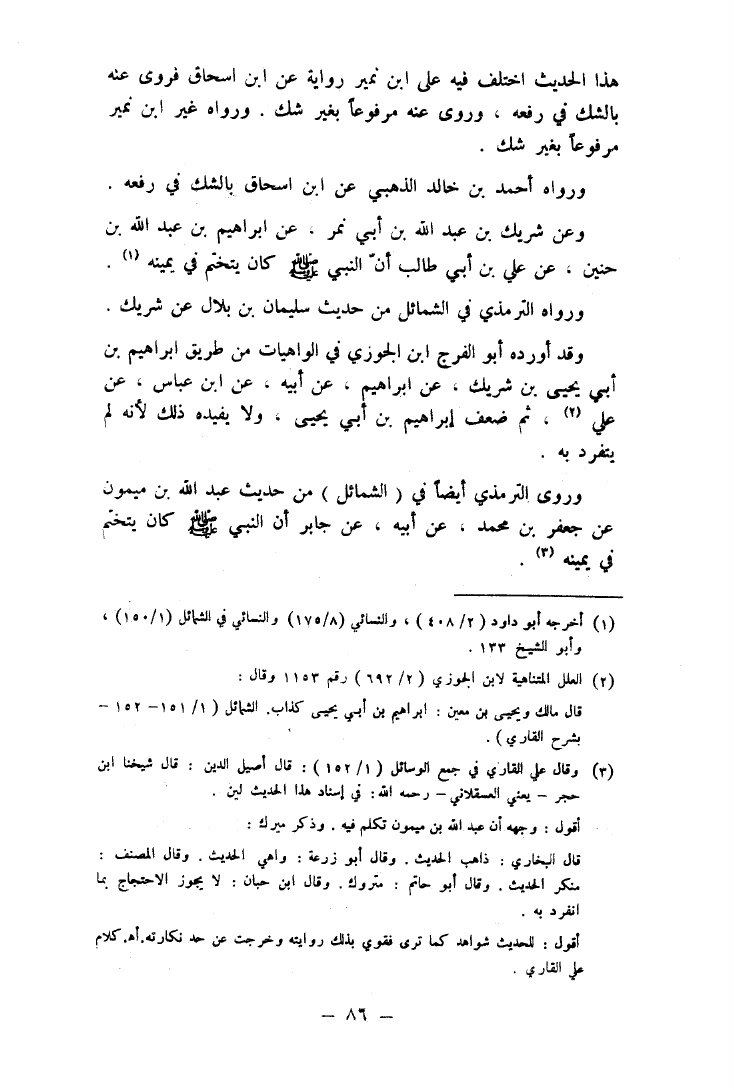 هذا الحديث اختلف فيه على ابن نمير رواية عن ابن اسحاق فروى عنه
بالشك في رفعه ، وروى عنه مرفوعاً بغير شك . ورواه غير ابن نمير
مرفوعاً بغير شك .
ورواه أحمد بن خالد الذهبي عن ابن اسحاق بالشك في رفعه .
وعن شريك بن عبد الله بن أبي نمر ، عن ابراهيم بن عبد الله بن
حنين ، عن علي بن أبي طالب أنّ النبي ﷺ كان يتختّم في يمينه (١) .
ورواه الترمذي في الشمائل من حديث سليمان بن بلال عن شريك .
وقد أورده أبو الفرج ابن الجوزي في الواهيات من طريق ابراهيم بن
أبي يحيى بن شريك ، عن ابراهيم ، عن أبيه ، عن ابن عباس ، عن
علي (٢) ، ثم ضعف إبراهيم بن أبي يحيى ، ولا يفيده ذلك لأنه لم
يتفرد به .
وروى الترمذي أيضاً في ( الشمائل ) من حديث عبد الله بن ميمون
عن جعفر بن محمد ، عن أبيه ، عن جابر أن النبي ﷺ كان يتختّم
في يمينه (٣) .
(١) أخرجه أبو داود ( ٢/ ٤٠٨ ) ، والنسائي (٨/ ١٧٥) والنسائي في الشمائل (١/ ١٥٠) ،
وأبو الشيخ ١٣٣ .
(٢) العلل المتناهية لابن الجوزي ( ٢/ ٦٩٢ ) رقم ١١٥٣ وقال :
قال مالك ويحيى بن معين : ابراهيم بن أبي يحيى كذاب. الشمائل ( ١/ ١٥١- ١٥٢ -
بشرح القاري ) .
(٣) وقال علي القاري في جمع الوسائل ( ١/ ١٥٢ ) : قال أصيل الدين : قال شيخنا ابن
حجر - يعني العسقلاني - رحمه الله: في إسناد هذا الحديث لين .
أقول : وجهه أن عبد الله بن ميمون تكلم فيه . وذكر ميرك :
قال البخاري : ذاهب الحديث . وقال أبو زرعة : واهي الحديث . وقال المصنف :
منكر الحديث . وقال أبو حاتم : متروك . وقال ابن حبان : لا يجوز الاحتجاج بما
انفرد به .
أقول : للحديث شواهد كما ترى فقوي بذلك روايته وخرجت عن حد نكارته.أهـ.كلام
علي القاري .
- ٨٦ -